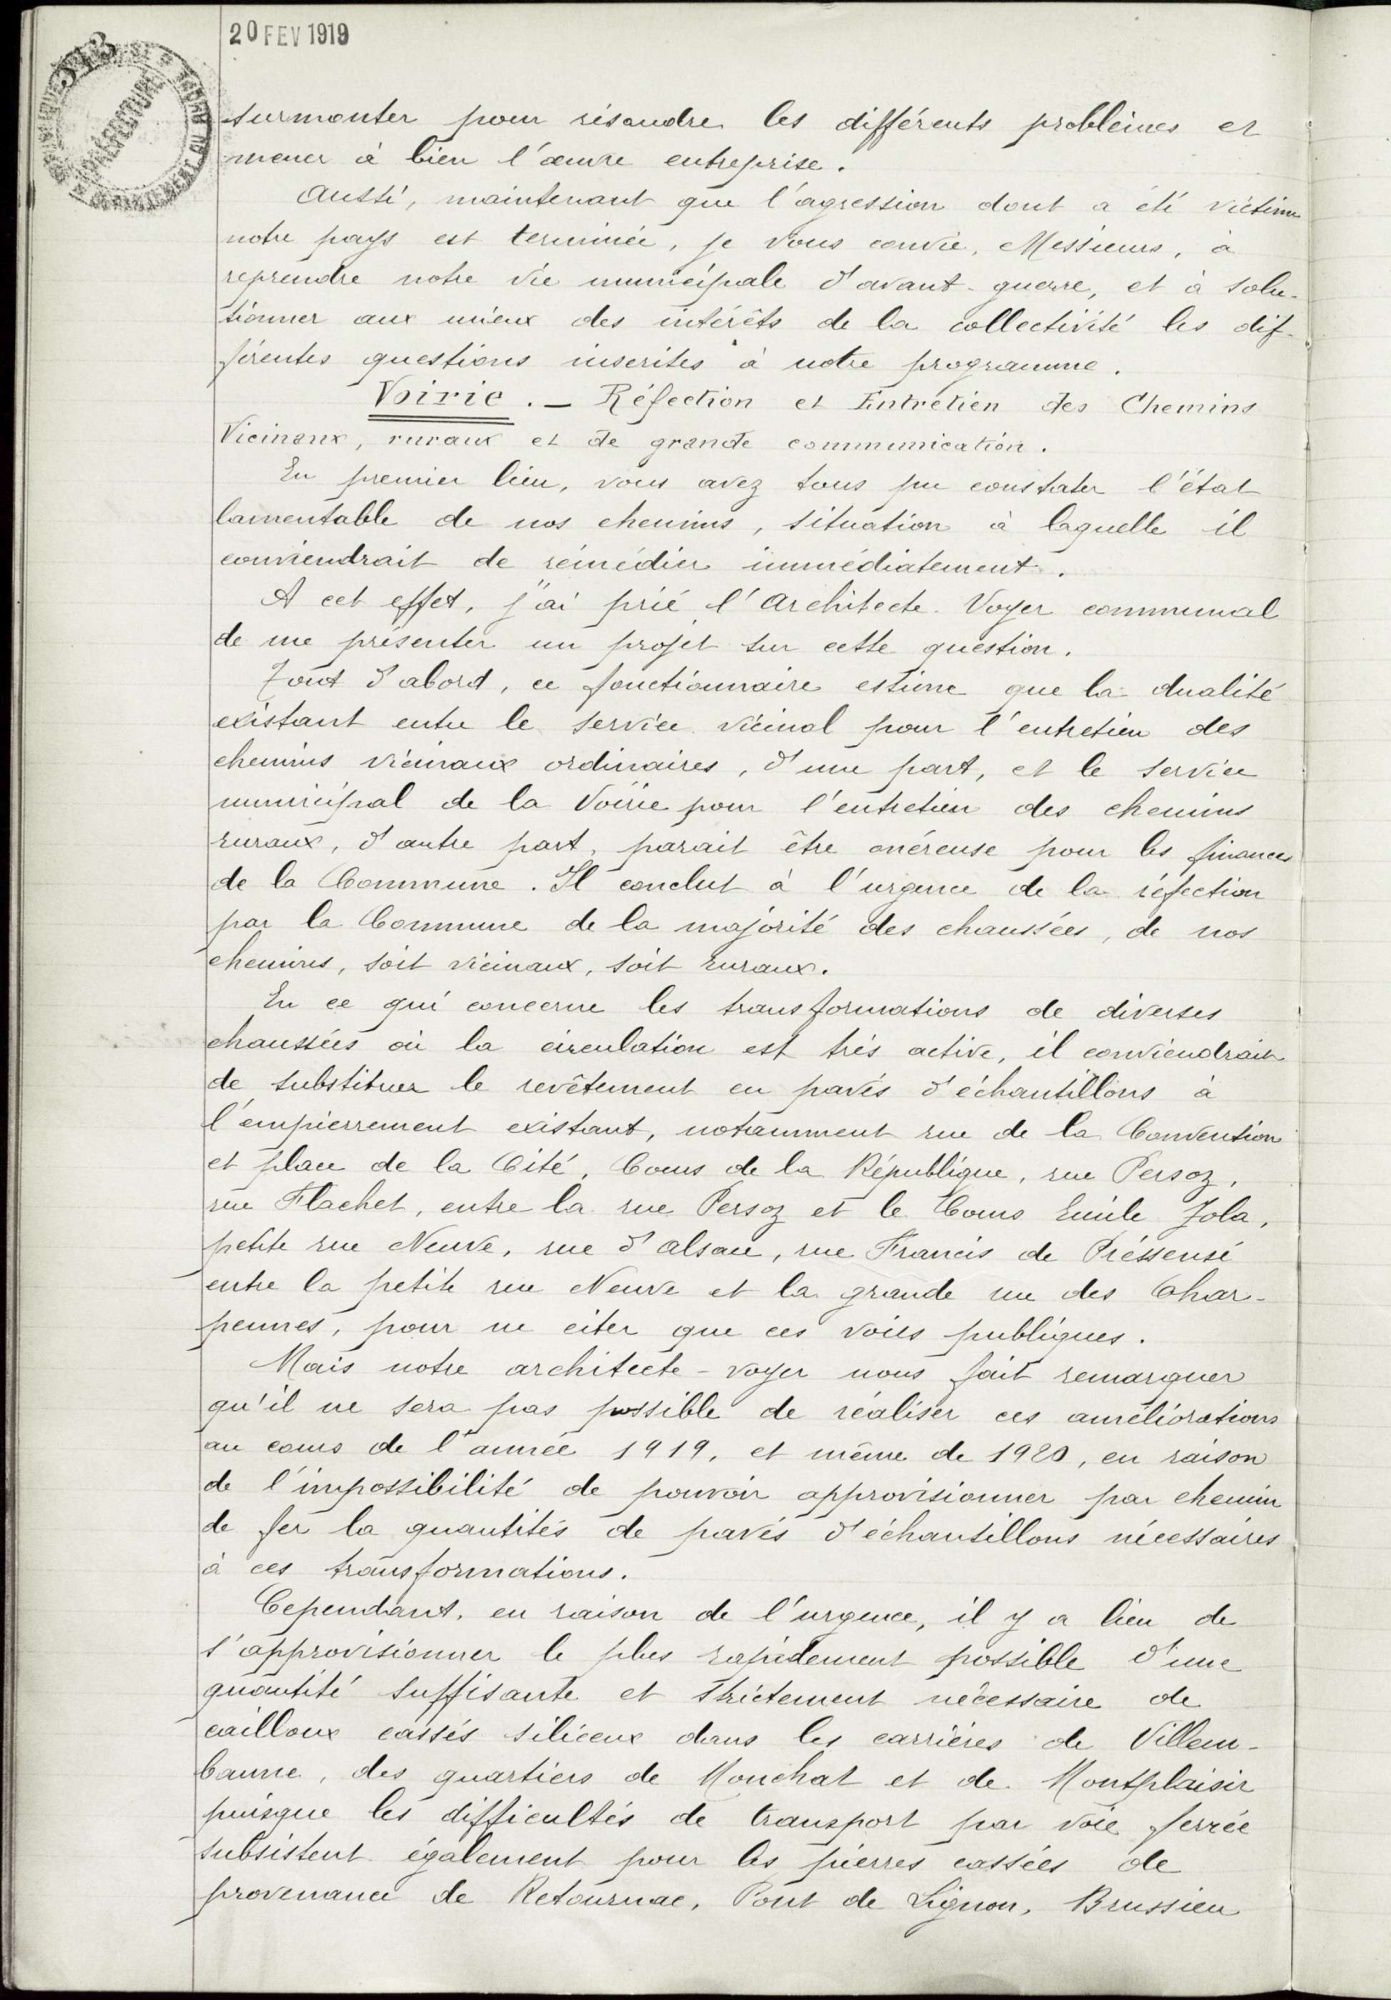 20 FEV 1919
PRÉFECTURE
surmonter pour résoudre les différents problèmes et
mener à bien l'œuvre entreprise.
Aussi, maintenant que l'agression dont a été victime
notre pays est terminée, je vous convie, Messieurs, à
reprendre notre vie municipale d'avant-guerre, et à solu-
tionner aux mieux des intérêts de la collectivité les dif-
férentes questions inscrites à notre programme.
Voirie. — Réfection et Entretien des Chemins
Vicinaux, ruraux et de grande communication.
En premier lieu, vous avez tous pu constater l'état
lamentable de nos chemins, situation à laquelle il
conviendrait de rémédier immédiatement.
A cet effet, j'ai prié l'Architecte-Voyer communal
de me présenter un projet sur cette question.
Tout d'abord, ce fonctionnaire estime que la dualité
existant entre le service vicinal pour l'entretien des
chemins vicinaux ordinaires, d'une part, et le service
municipal de la Voirie pour l'entretien des chemins
ruraux, d'autre part, parait être onéreuse pour les finances
de la Commune. Il conclut à l'urgence de la réfection
par la Commune de la majorité des chaussées, de nos
chemins, soit vicinaux, soit ruraux.
En ce qui concerne les transformations de diverses
chaussées où la circulation est très active, il conviendrait
de substituer le revêtement en pavés d'échantillons à
l'empierrement existant, notamment rue de la Convention
et place de la Cité, Cours de la République, rue Persoz,
rue Flachet, entre la rue Persoz et le Cours Emile Zola,
petite rue Neuve, rue d'Alsace, rue Francis de Préssensé
entre la petite rue Neuve et la grande rue des Char-
pennes, pour ne citer que ces voies publiques.
Mais notre architecte-voyer nous fait remarquer
qu'il ne sera pas possible de réaliser ces améliorations
au cours de l'année 1919, et même de 1920, en raison
de l'impossibilité de pouvoir approvisionner par chemin
de fer la quantités de pavés d'échantillons nécessaires
à ces transformations.
Cependant, en raison de l'urgence, il y a lieu de
s'approvisionner le plus rapidement possible d'une
quantité suffisante et strictement nécessaire de
cailloux cassés siliceux dans les carrières de Villeur-
banne, des quartiers de Monchat et de Montplaisir
puisque les difficultés de transport par voie ferrée
subsistent également pour les pierres cassées de
provenance de Retournac, Pont de Lignon, Brussieu